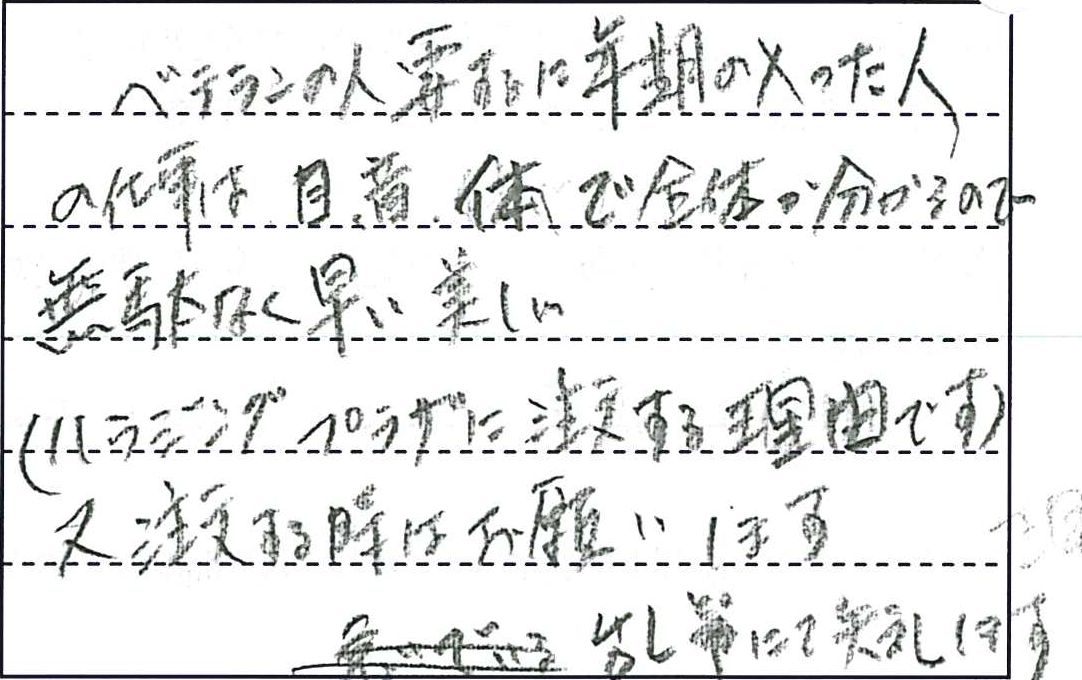 ベテランの人要するに年期の入った人
の仕事は 目.音.体で全体が分かるので
無駄なく早い美しい
(ハラミングプラザに注文する理由です)
又注文する時はお願いします
乱筆にて失礼します